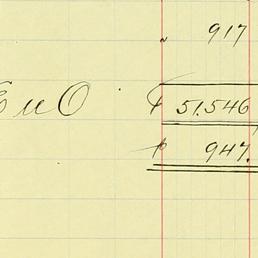 " 917
E u O $ 51.546
$ 947.